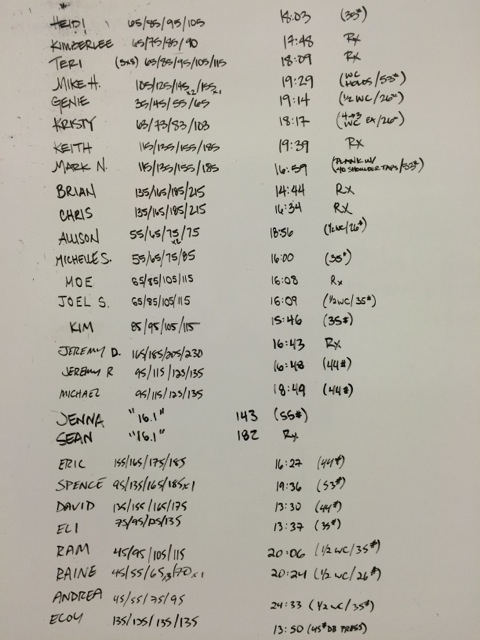 HEIDI 65/85/95/105 18:03 (35#)
KIMBERLEE 65/75/85/90 17:48 Rx
TERI (5x5) 65/85/95/105/115 18:09 Rx
MIKE H. 105/125/145x2/155x1 19:29 (WC HOLDS/53#)
GENIE 35/45/55/65 19:14 (1/2 WC/26#)
KRISTY 63/73/83/103 18:17 (WC EX/26#)
KEITH 115/135/155/185 19:39 Rx
MARK N. 115/135/155/185 16:59 (PLANK W/ 40 SHOULDER TAPS/53#)
BRIAN 135/165/185/215 14:44 Rx
CHRIS 135/165/185/215 16:34 Rx
ALLISON 55/65/75/75 x2 18:56 (1/2 WC/26#)
MICHELLE S. 55/65/75/85 16:00 (35#)
MOE 65/85/105/115 16:08 Rx
JOEL S. 65/85/105/115 16:09 (1/2 WC/35#)
KIM 85/95/105/115 15:46 (35#)
JEREMY D. 165/185/205/230 16:43 Rx
JEREMY R 95/115/125/135 16:48 (44#)
MICHAEL 95/115/125/135 18:49 (44#)
JENNA "16.1" 143 (55#)
SEAN "16.1" 182 Rx
ERIC 155/165/175/185 16:27 (44#)
SPENCE 95/135/165/185x1 19:36 (53#)
DAVID 135/155/165/175 13:30 (44#)
ELI 75/95/125/135 13:37 (35#)
RAM 45/95/105/115 20:06 (1/2 WC/35#)
RAINE 45/55/65x3/70x1 20:24 (1/2 WC/26#)
ANDREA 45/55/75/95 24:33 (1/2 WC/35#)
ECOY 135/135/135/135 13:50 (45# DB PRESS)